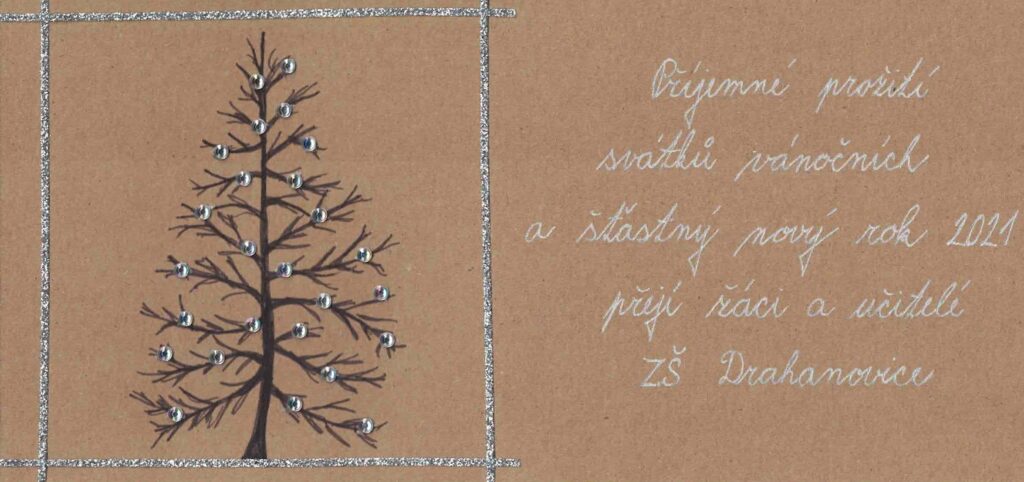 Příjemné prožití
svátků vánočních
a šťastný nový rok 2021
přejí žáci a učitelé
ZŠ Drahanovice